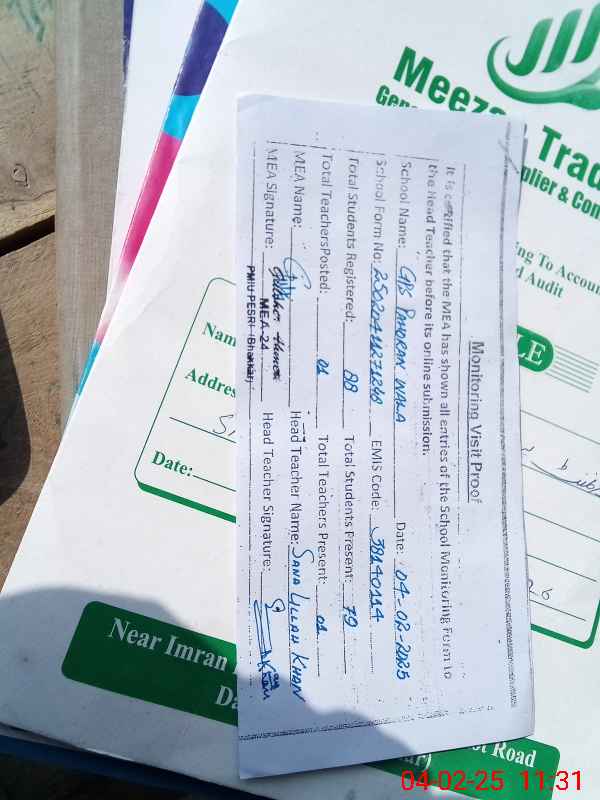 Monitoring Visit Proof
It is certified that the MEA has shown all entries of the School Monitoring Form to
the Head Teacher before its online submission.
School Name: GPS PAHORAN WALA Date: 04-02-2025
School Form No: EMIS Code: 38140114
Total Students Registered: 88 Total Students Present: 79
Total Teachers Posted: 01 Total Teachers Present: 01
MEA Name: Head Teacher Name: SANA ULLAH KHAN
MEA Signature: Head Teacher Signature:
MEA-24
PMIU-PESRP (Bhakkar)
Meezan Trad
Gen
pplier & Con
ng To Accoun
d Audit
LE
Nam
Addres
Date:
26
Near Imran
Da
ot Road
ar)
04-02-25 11:31